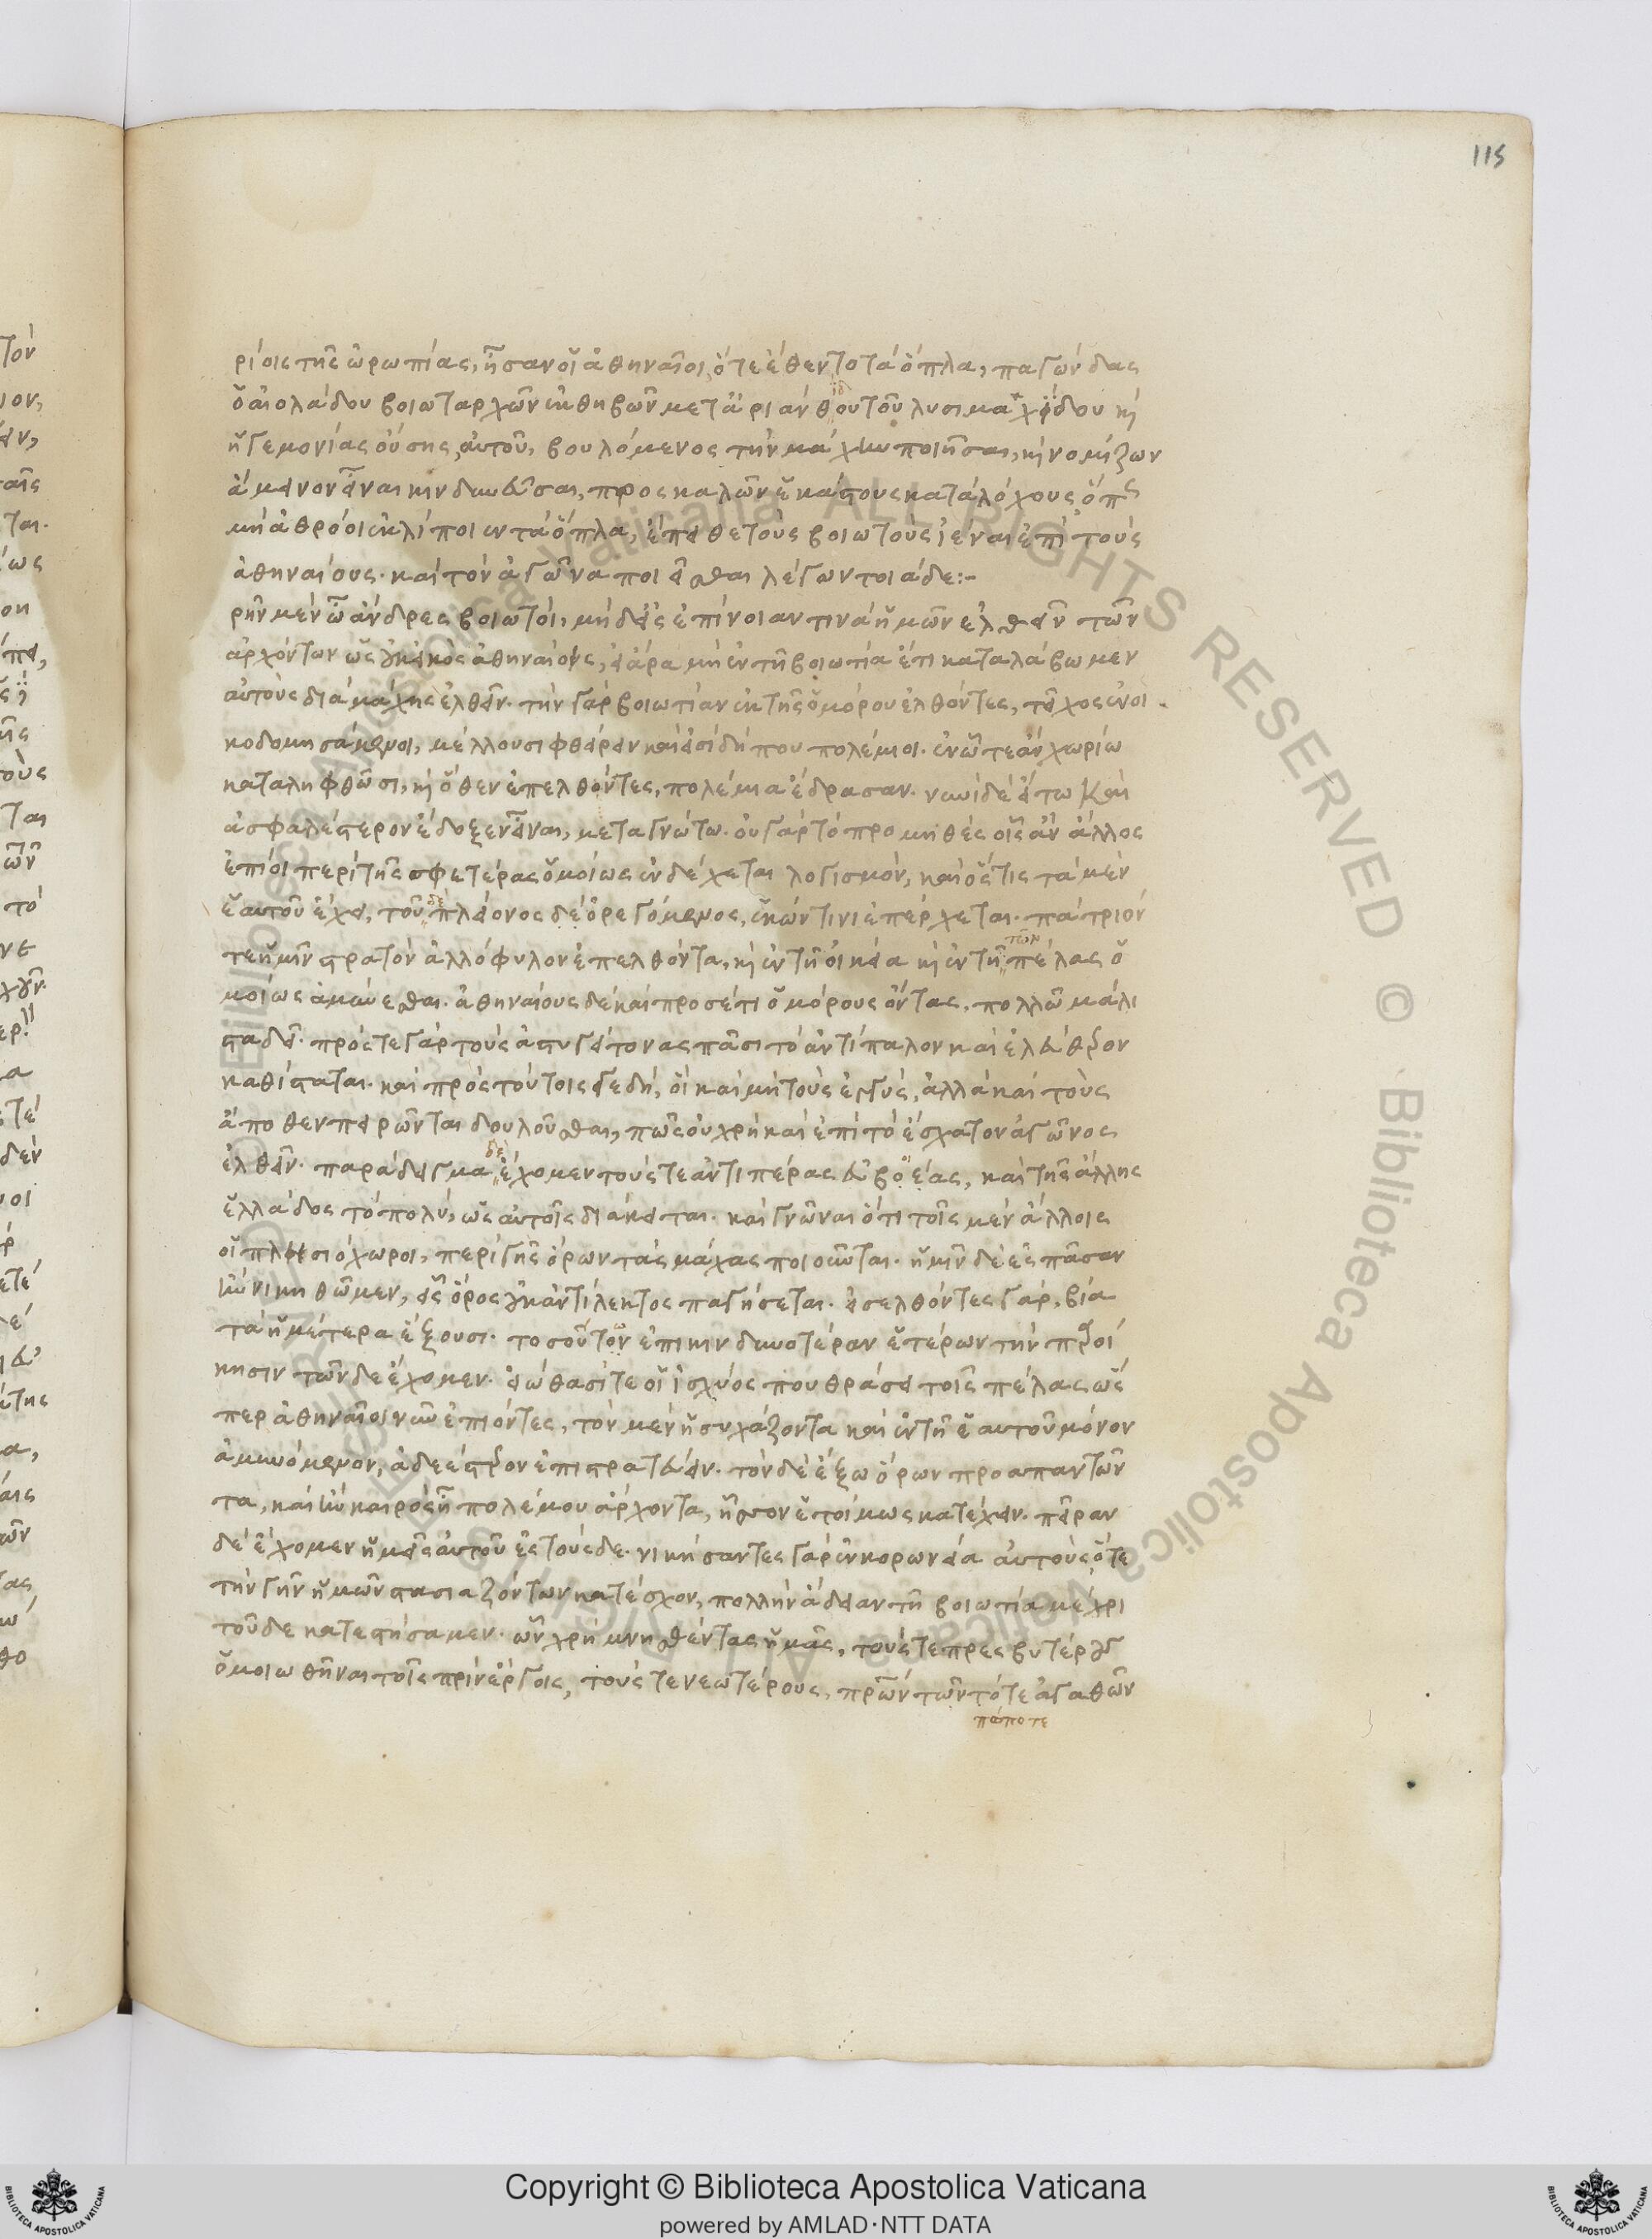 115
ρίοις τῆς ὠρωπίας, ἦσαν οἱ ἀθηναῖοι ὅτε ἔθεντο τὰ ὅπλα, παγώνδας
ὁ αἰολάδου βοιωταρχῶν ἐκ θηβῶν μετ' ἀριανθίδου τοῦ λυσιμαχίδου καὶ
ἡγεμονίας οὔσης αὐτοῦ, βουλόμενος τὴν μάχην ποιῆσαι, καὶ νομίζων
ἄμεινον εἶναι κινδυνεῦσαι, προσκαλῶν ἑκάστους κατὰ λόχους, ὅπως
μὴ ἀθρόοι ἐκλίποιεν τὰ ὅπλα, ἔπειθε τοὺς βοιωτοὺς ἰέναι ἐπὶ τοὺς
ἀθηναίους. καὶ τὸν ἀγῶνα ποιεῖσθαι λέγων τοιάδε:-
ρῆν μὲν ὦ ἄνδρες βοιωτοὶ, μηδ' ἐς ἐπίνοιάν τινα ἡμῶν ἐλθεῖν τῶν
ἀρχόντων ὡς οὐκ εἰκὸς ἀθηναίοις, εἰ ἄρα μὴ ἐν τῇ βοιωτία ἔτι καταλάβωμεν
αὐτοὺς διὰ μάχης ἐλθεῖν. τὴν γὰρ βοιωτίαν ἐκ τῆς ὁμόρου ἐλθόντες, τεῖχος ἐνοι
κοδομησάμενοι, μέλλουσι φθείρειν καὶ εἰσὶ δήπου πολέμιοι. ἐν ὧ τε ἂν χωρίω
καταληφθῶσι, καὶ ὅθεν ἐπελθόντες, πολέμια ἔδρασαν. νυνὶ δὲ εἴ τω καὶ
ἀσφαλέστερον ἔδοξεν εἶναι, μεταγνώτω. οὐ γὰρ τὸ προμηθὲς οἷς ἂν ἄλλος
ἐπίοι περὶ τῆς σφετέρας ὁμοίως ἐνδέχεται λογισμὸν, καὶ ὅστις τὰ μὲν
ἑαυτοῦ ἔχει, τοῦ πλείονος δὲ ὀρεγόμενος, ἑκών τινι ἐπέρχεται. πάτριόν
τε ἡμῖν στρατὸν ἀλλόφυλον ἐπελθόντα, καὶ ἐν τῇ οἰκεία καὶ ἐν τῇ τῶν πέλας ὁ
μοίως ἀμύνεσθαι. ἀθηναίους δὲ καὶ προσέτι ὁμόρους ὄντας, πολλῶ μάλι
στα δεῖ. πρός τε γὰρ τοὺς ἀστυγείτονας πᾶσι τὸ ἀντίπαλον καὶ ἐλεύθερον
καθίσταται. καὶ πρὸς τούτοις γε δὴ, οἳ καὶ μὴ τοὺς ἐγγὺς, ἀλλὰ καὶ τοὺς
ἄποθεν πειρῶνται δουλοῦσθαι, πῶς οὐ χρὴ καὶ ἐπὶ τὸ ἔσχατον ἀγῶνος
ἐλθεῖν. παράδειγμα δὲ ἔχομεν τούς τε ἀντιπέρας εὐβοέας, καὶ τῆς ἄλλης
ἑλλάδος τὸ πολὺ, ὡς αὐτοῖς διάκειται. καὶ γνῶναι ὅτι τοῖς μὲν ἄλλοις
οἱ πλησιόχωροι, περὶ γῆς ὅρων τὰς μάχας ποιοῦνται. ἡμῖν δὲ ἐς πᾶσαν
ἢν νικηθῶμεν, εἷς ὅρος οὐκ ἀντίλεκτος παγήσεται. εἰσελθόντες γὰρ, βία
τὰ ἡμέτερα ἕξουσι. τοσοῦτον ἐπικινδυνοτέραν ἑτέρων τὴν παροί
κησιν τῶνδε ἔχομεν. εἰώθασί τε οἱ ἰσχύος που θράσει τοῖς πέλας ὥς
περ ἀθηναῖοι νῦν ἐπιόντες, τὸν μὲν ἡσυχάζοντα καὶ ἐν τῇ ἑαυτοῦ μόνον
ἀμυνόμενον, ἀδεέστερον ἐπιστρατεύειν. τὸν δὲ ἔξω ὅρων προαπαντῶν
τα, καὶ ἢν καιρὸς ἦ πολέμου ἄρχοντα, ἧσσον ἑτοίμως κατέχειν. πεῖραν
δὲ ἔχομεν ἡμεῖς αὐτοῦ ἐς τούσδε. νικήσαντες γὰρ ἐν κορωνεία αὐτοὺς ὅτε
τὴν γῆν ἡμῶν στασιαζόντων κατέσχον, πολλὴν ἄδειαν τῇ βοιωτία μέχρι
τοῦδε κατεστήσαμεν. ὧν χρὴ μνησθέντας ἡμᾶς, τούς τε πρεσβυτέρους
ὁμοιωθῆναι τοῖς πρὶν ἔργοις, τούς τε νεωτέρους, πρῶν τῶν τότε ἀγαθῶν
Copyright © Biblioteca Apostolica Vaticana
powered by AMLAD·NTT DATA